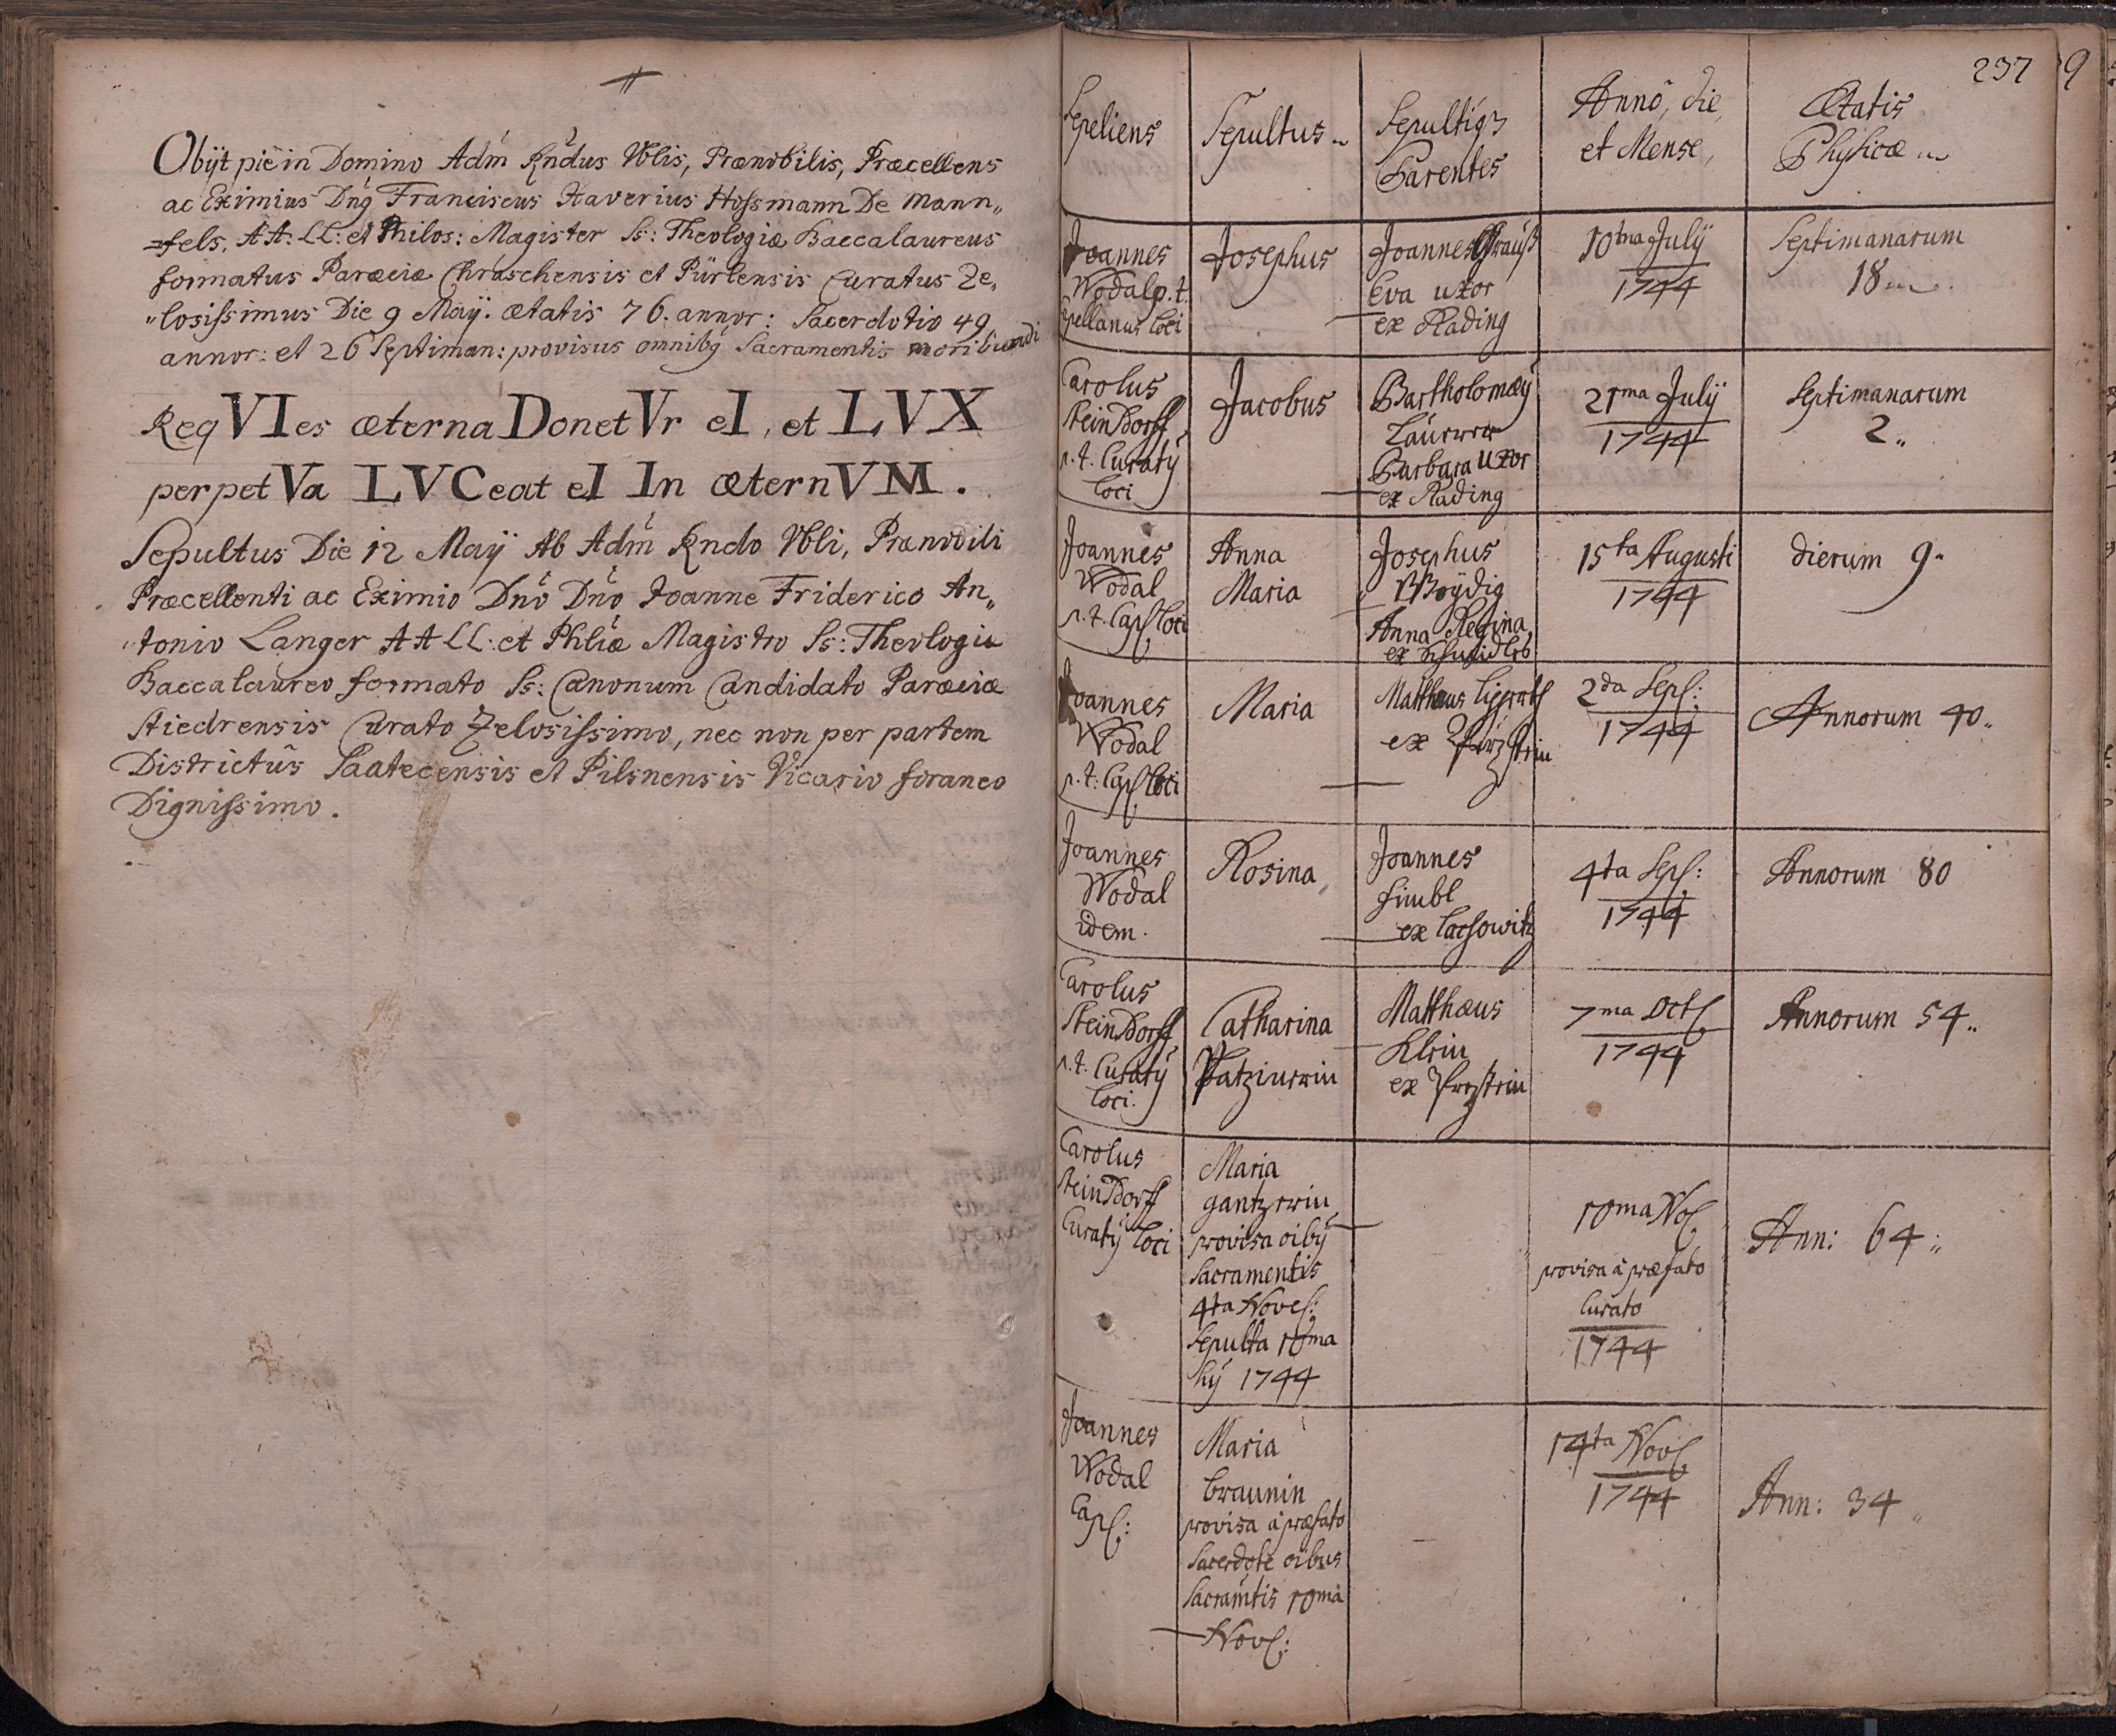 Obijt piè in Domino Adm Rndus Nblis, Prænobilis, Præcellens
ac Eximius Dnq Franciscus Xaverius Hossmann De Mann„
=fels, AA: LL: et Philos: Magister Ss: Theologiæ Baccalaureus
formatus Parœciæ Chraschensis et Pürlensis Curatus Ze„
„losissimus Die 9 Maÿ. ætatis 76. annor: Sacerdotio 49
annor: et 26 Septiman: provisus omnibq Sacramentis moribundi
ReqVIes æterna DonetVr eI, et LVX
perpetVa LVCeat eI In æternVM.
Sepultus Die 12 Maÿ Ab Adm Rndo Nbli, Prænobili
Præcellenti ac Eximio Dno Dno Joanne Friderico An„
„tonio Langer AA LL: et Phliæ Magistro Ss: Theologiæ
Baccalaureo formato Ss: Canonum Candidato Parœciæ
Stiedrensis Curato Zelosissimo, nec non per partem
Districtûs Saatecensis et Pilsnensis Vicario foraneo
Dignissimo.
237
9
Sepeliens
Sepultus
Sepultiq3
Parentes
Annô, die,
et Mense,
Ætatis
Physicæ
Joannes
Wodal p.t.
Cpellanus loci
Josephus
Joannes Strauß
Eva uxor
ex Rading
10tna Julÿ
1744
Septimanarum
18
Carolus
SteinDorff
p.t. Curatq
loci
Jacobus
Bartholomæq

Barbara uxor
ex Rading
21ma Julÿ
1744
Septimanarum
2„
Joannes
Wodal
p.t. Cap: loci
Anna
Maria
Josephus

Anna Regina
ex
15ta Augusti
1744
dierum 9„
Joannes
Wodal
p.t: Cap: loci
Maria
Matthæus
ex
2da Sep:
1744
Annorum 40„
Joannes
Wodal
idem.
Rosina
Joannes
Fimbl
ex
4ta Sep:
1744
Annorum 80
Carolus
SteinDorff
p.t. Curatq
loci.
Catharina

Matthæus
Klein
ex
7ma Oct:
1744
Annorum 54„
Carolus
SteinDorff
Curatq loci
Maria

provisa oibq
Sacramentis
4ta Nove:
Sepulta 10ma
hq 1744
10ma No:
provisa à præfato
Curato
1744
Ann: 64„
Joannes
Wodal
Cap:
Maria
Braunin
provisa à præfato
Sacerdote oibus
Sacramtis 10ma
Nov:
14ta Nov:
1744
Ann: 34„